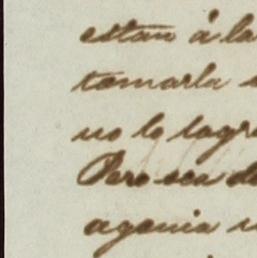 estan á la
tomarla
no lo logr
Pero sea d
agonia